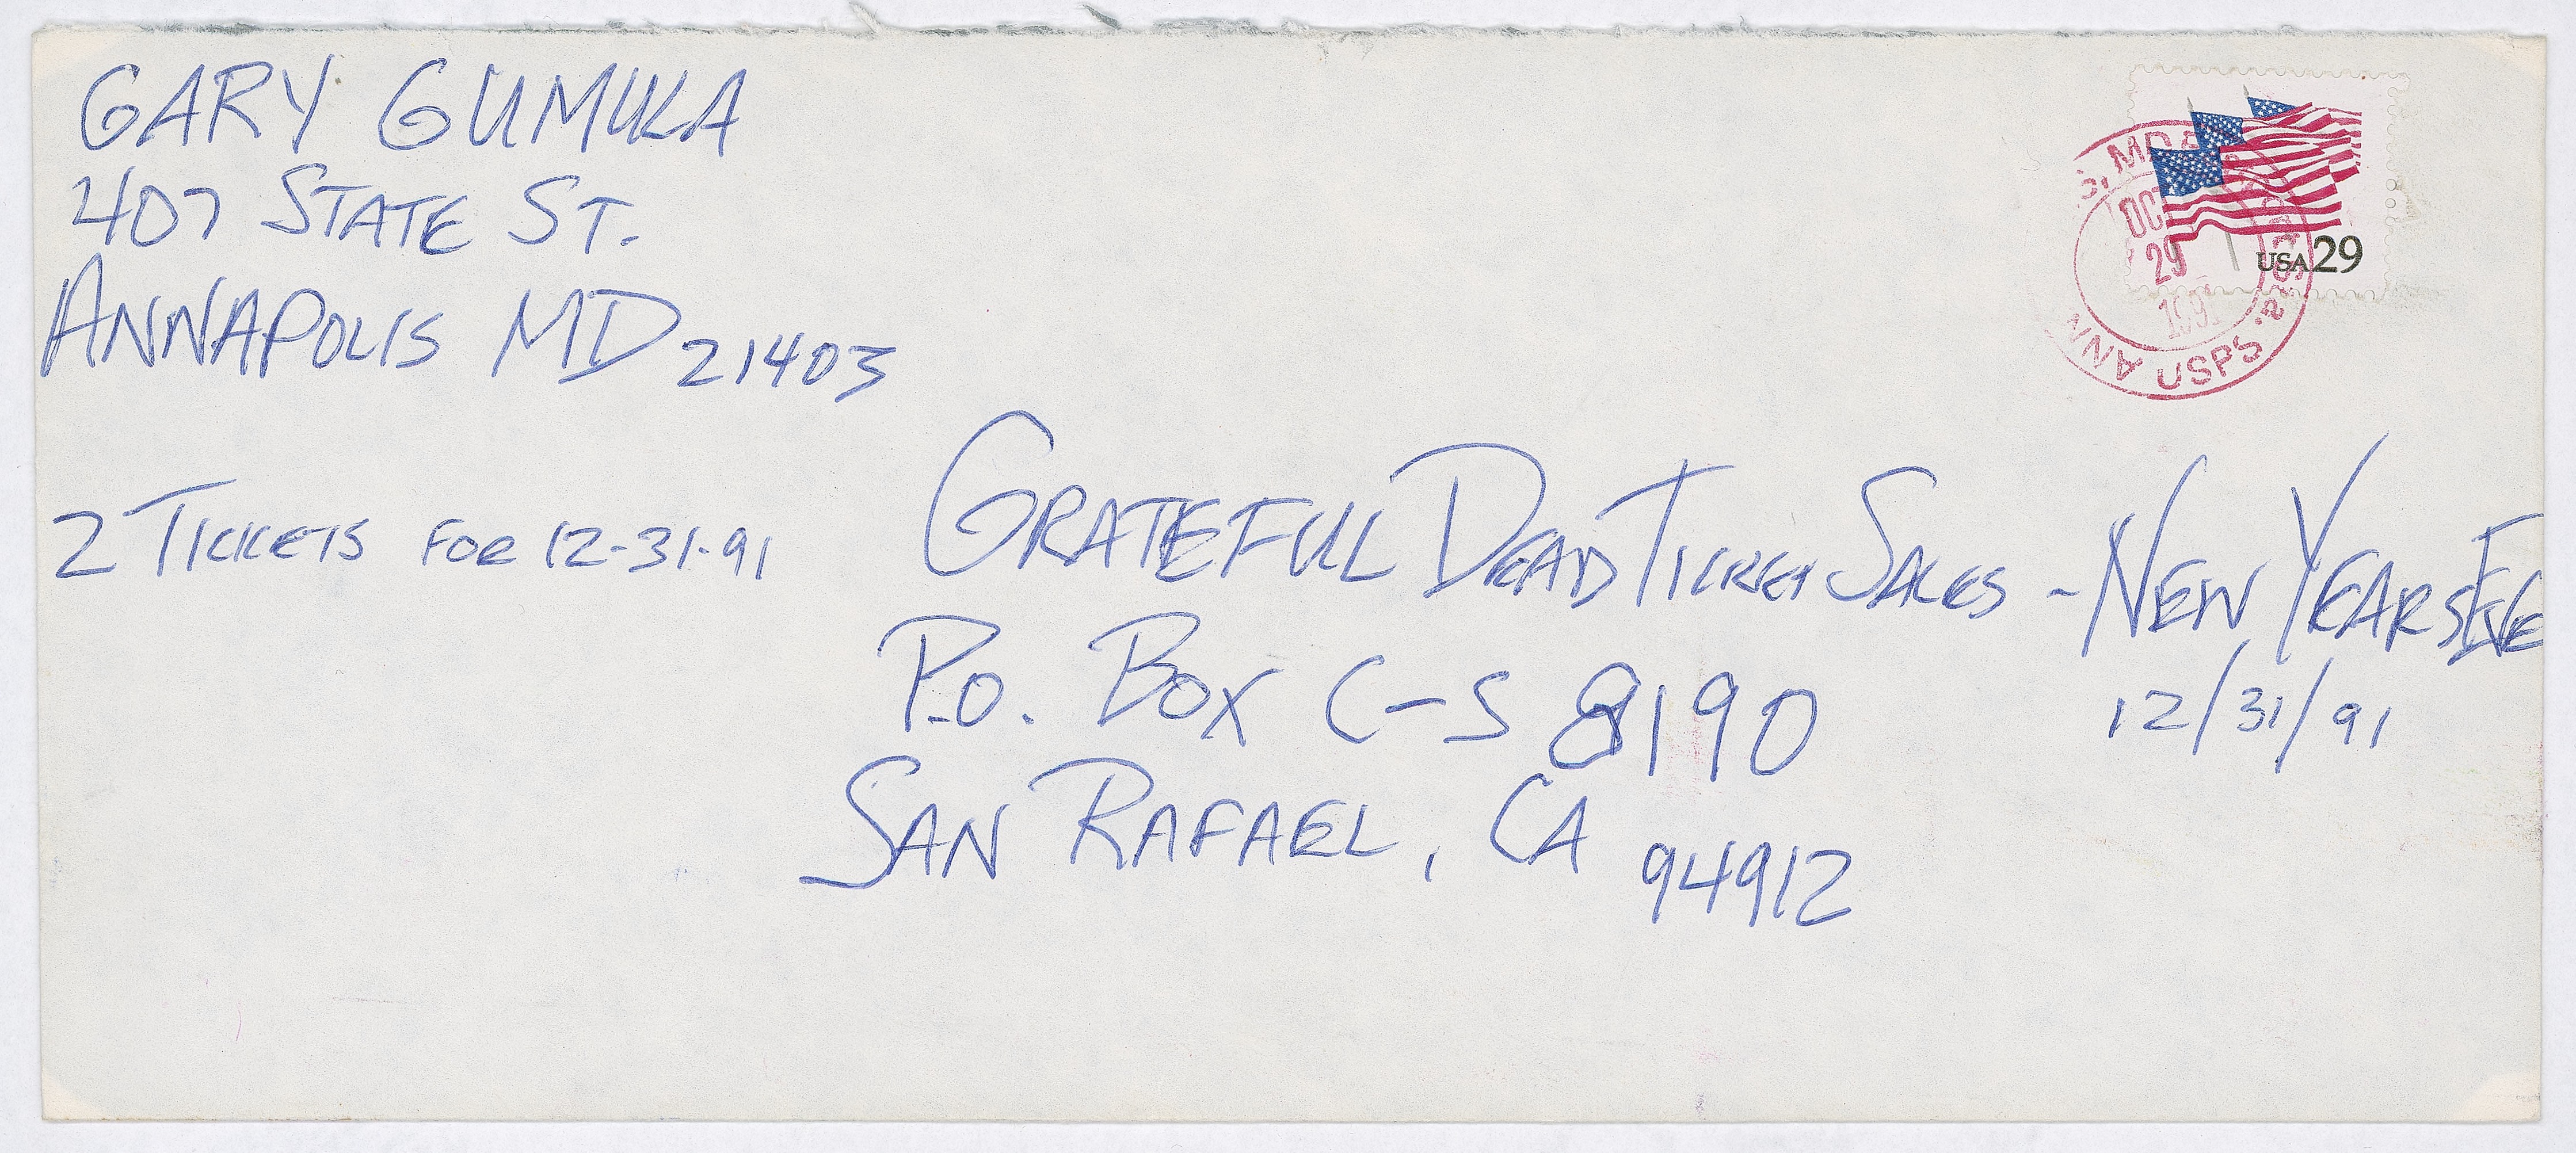 GARY GUMUKA
407 STATE ST.
ANNAPOLIS MD 21403
2 TICKETS FOR 12-31-91
GRATEFUL DEAD TICKET SALES - NEW YEARS EVE
12/31/91
P.O. BOX C-S 8190
SAN RAFAEL, CA 94912
USA 29
OCT
29
1991
USPS